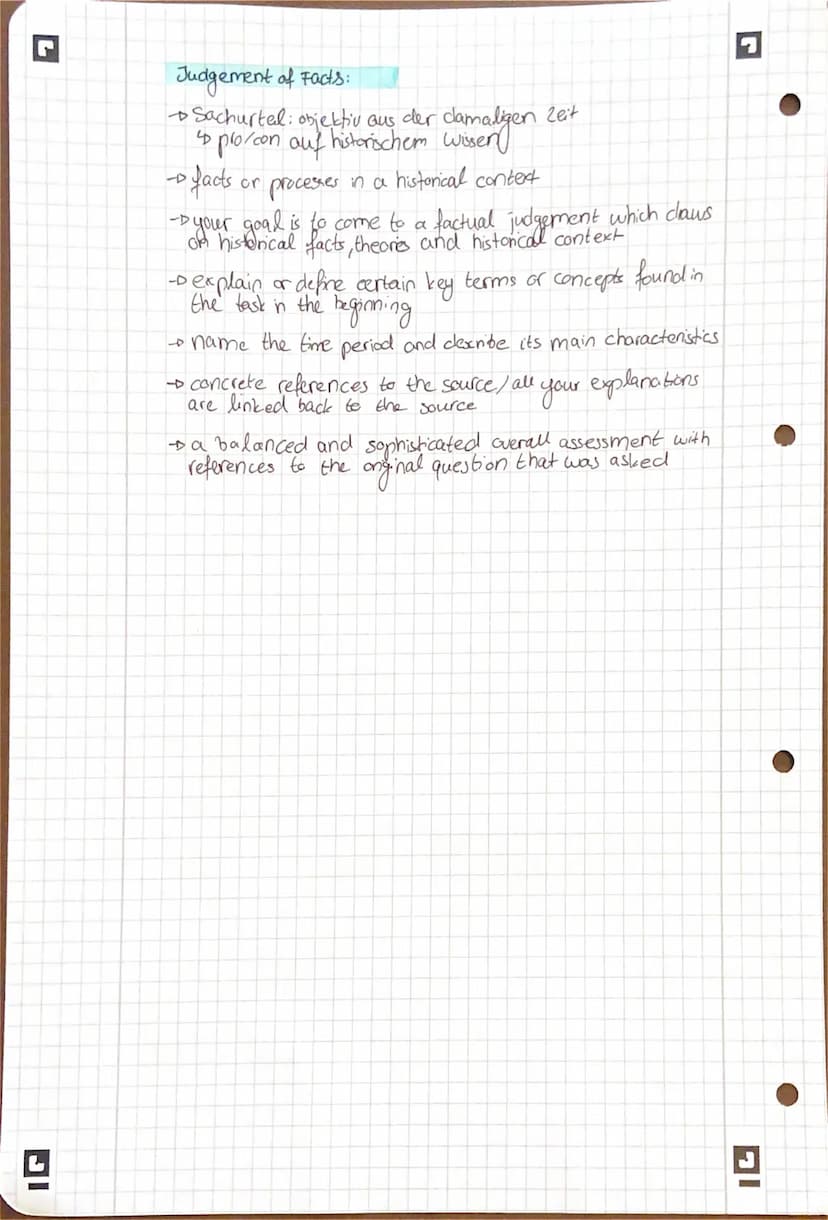 Judgement of Facts:
→ Sachurteil: objektiv aus der damaligen Zeit
↳ pro/con auf historischem Wissen
→ facts or processes in a historical context
→ your goal is to come to a factual judgement which draws
on historical facts, theories and historical context
→ explain or define certain key terms or concepts found in
the task in the beginning
→ name the time period and describe its main characteristics
→ concrete references to the source/all your explanations
are linked back to the source
→ a balanced and sophisticated overall assessment with
references to the original question that was asked